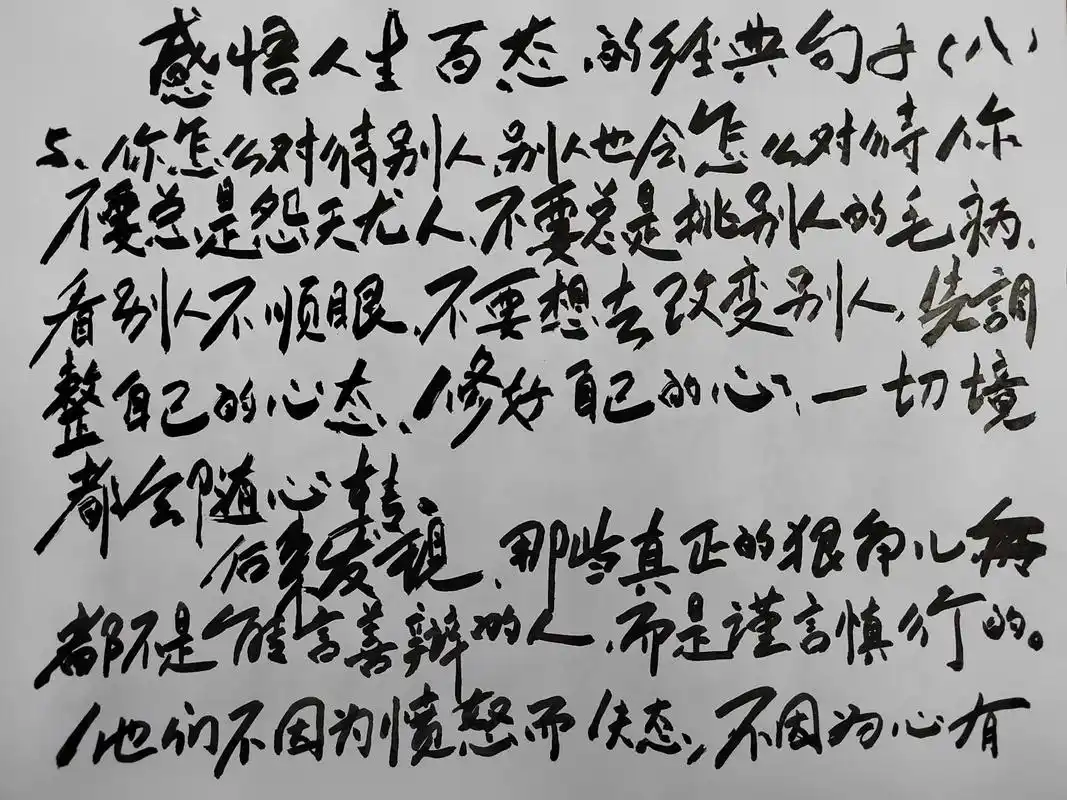 感悟人生百态的经典句子(八)
5、你怎么对待别人,别人也会怎么对待你
不要总是怨天尤人、不要总是挑别人的毛病、
看别人不顺眼,不要想去改变别人,先調
整自己的心态、修好自己的心,一切境
都会即随心转。
后来发现,那些真正的狠角儿
都不是能言善辩的人,而是谨言慎行的。
他们不因为愤怒而失态,不因为心有